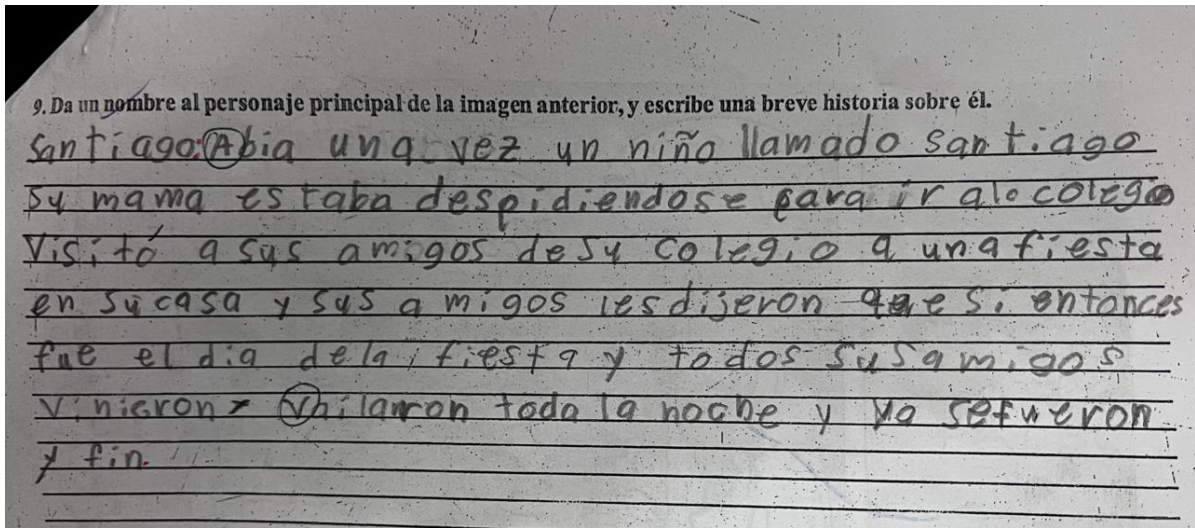 9. Da un nombre al personaje principal de la imagen anterior, y escribe una breve historia sobre él.
Santiago: Abia una vez un niño llamado santiago
su mama estaba despidiendose para ir alo colegio
Visitó a sus amigos de su colegio a una fiesta
en su casa y sus amigos les dijeron que si entonces
fue el dia de la fiesta y todos sus amigos
vinieron y vailaron toda la noche y yo se fueron
y fin.